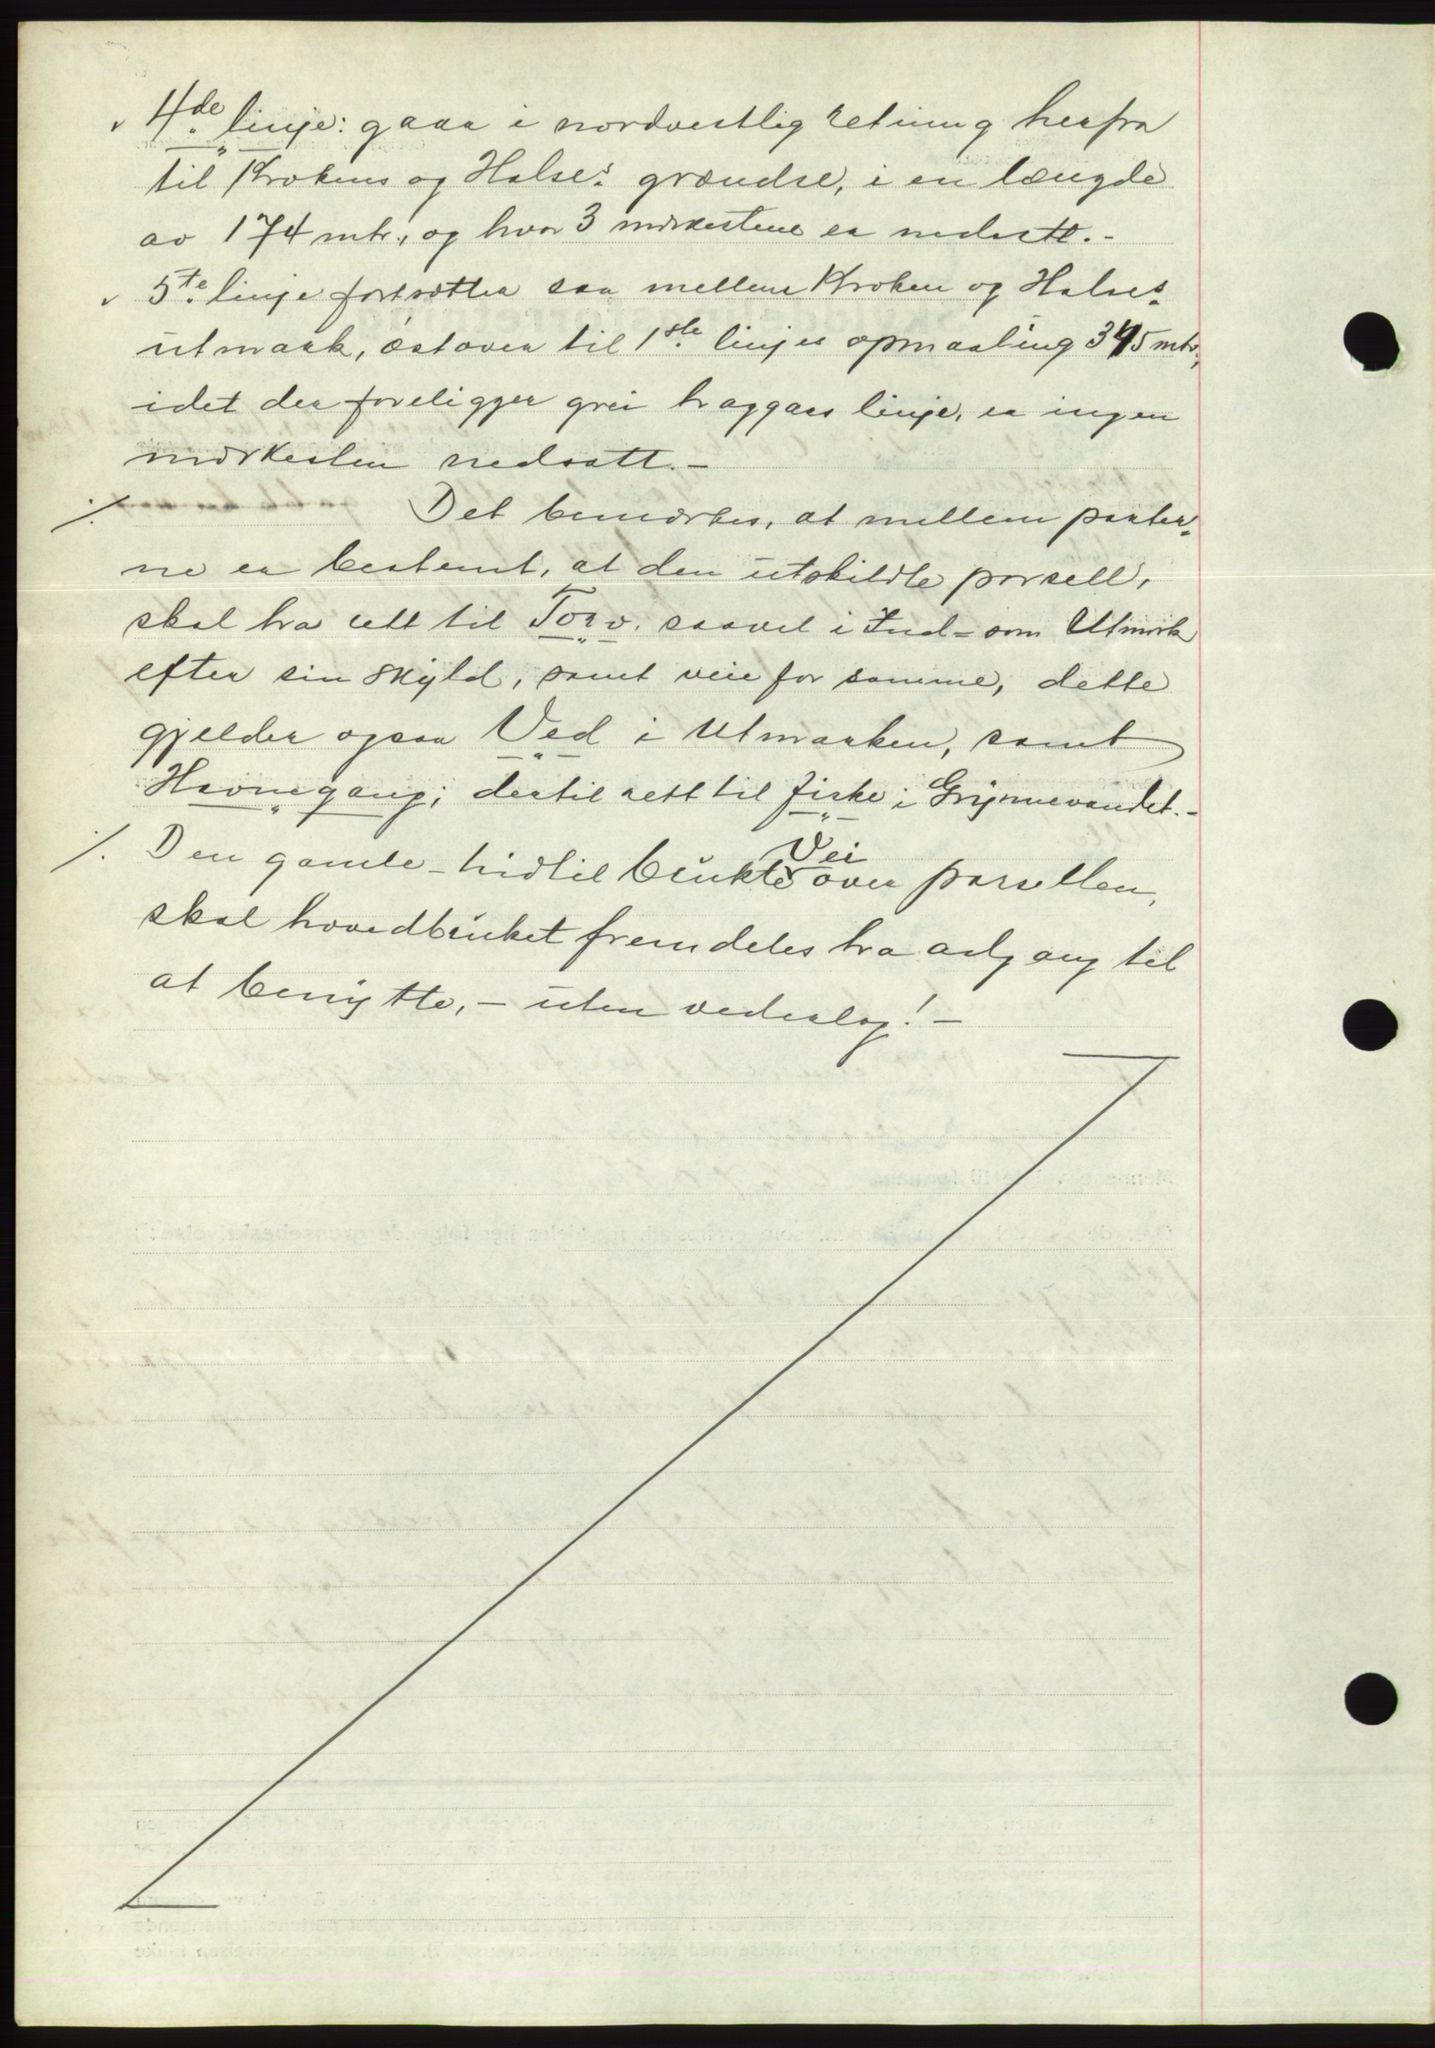 4de linje: gaar i nordvestlig retning herfra
til Krokens og Halses grændse, i en længde
av 174 mtr., og hvor 3 mærkestene er nedsatt.-
5te linje fortsætter saa mellem Kroken og Halses
utmark, østover til 1ste linjes opmaaling 345 mtr,
idet der foreligger grei haggaas linje, er ingen
mærkesten nedsatt.-
%. Det bemærkes, at mellem parter-
ne er bestemt, at den utskildte parsell,
skal ha rett til Torv. saavel i Ind- som Utmark
efter sin skyld, samt veie for samme, dette
gjelder ogsaa Ved i Utmarken, samt
Havnegang; dertil rett til fiske i Grynnevandet.-
%. Den gamle - hidtil brukte Vei over parsellen,
skal hovedbruket fremdeles ha adgang til
at benytte, - uten vederlag! -